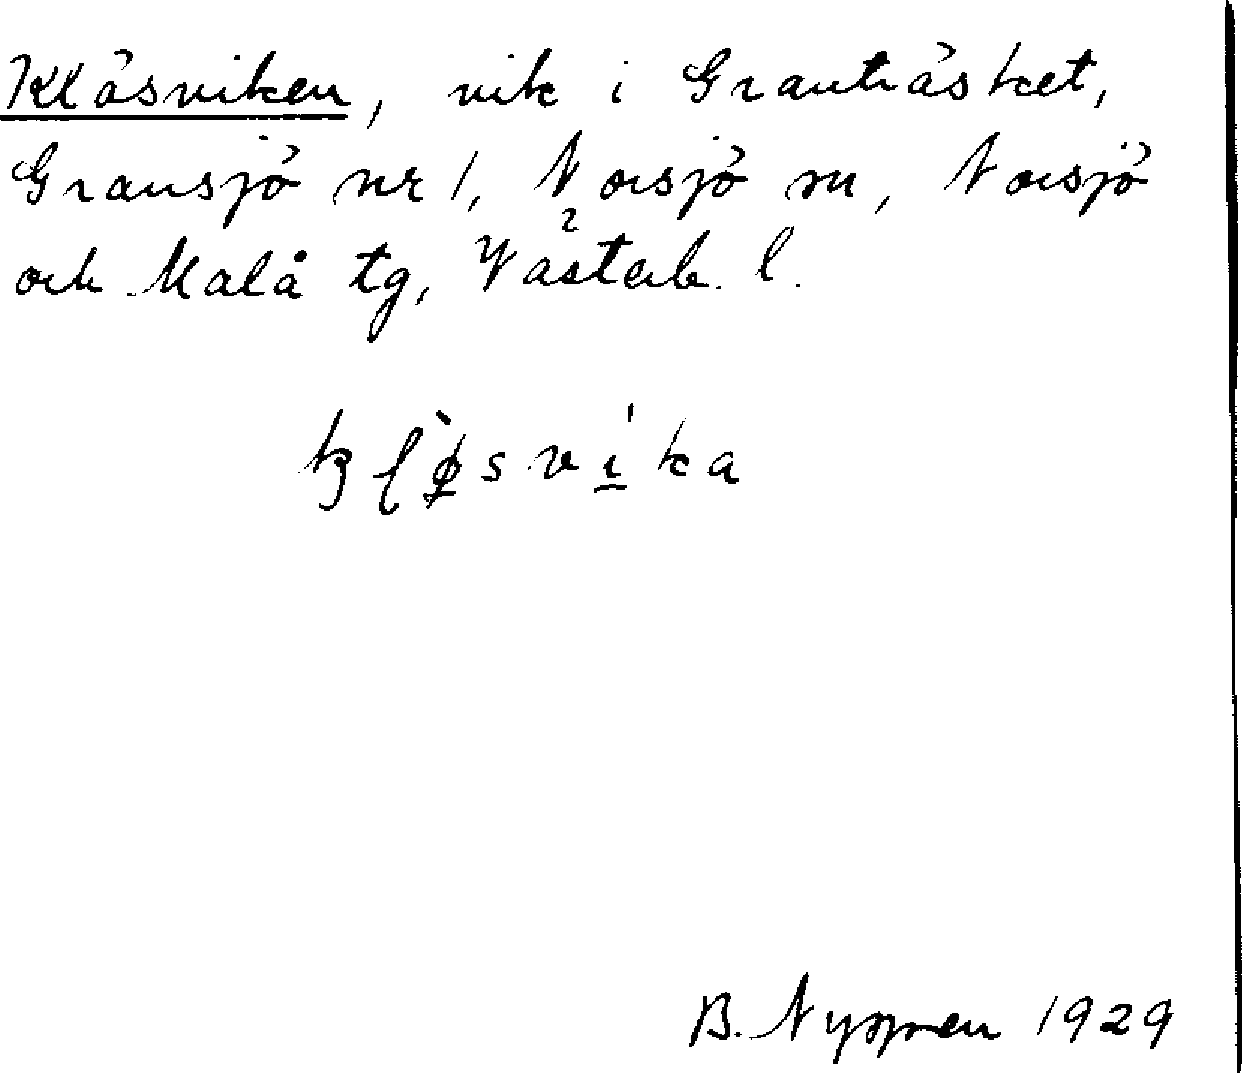 Kläsviken, vik i Granträsket,
Gransjö nr 1, Norsjö sn, Norsjö
och Malå tg, Västerb. l.
B. 1929